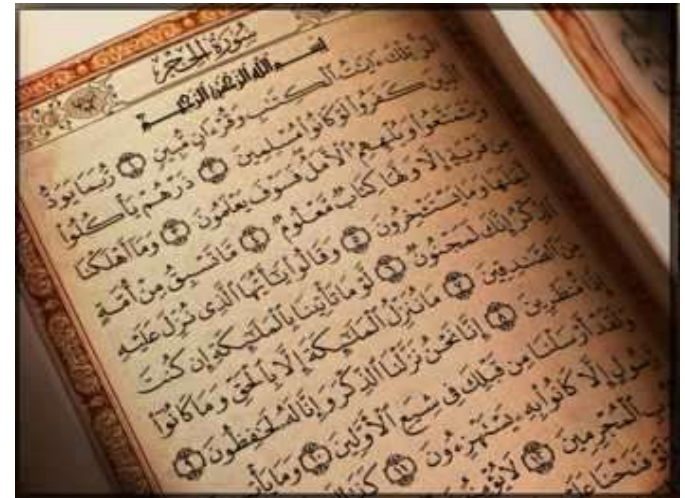 سُورَةُ الحِجْرِ
بِسْمِ اللَّهِ الرَّحْمَٰنِ الرَّحِيمِ
الٓر ۚ تِلْكَ ءَايَٰتُ ٱلْكِتَٰبِ وَقُرْءَانٍ مُّبِينٍ ١ رُّبَمَا يَوَدُّ
ٱلَّذِينَ كَفَرُوا۟ لَوْ كَانُوا۟ مُسْلِمِينَ ٢ ذَرْهُمْ يَأْكُلُوا۟
وَيَتَمَتَّعُوا۟ وَيُلْهِهِمُ ٱلْأَمَلُ فَسَوْفَ يَعْلَمُونَ ٣ وَمَآ أَهْلَكْنَا
مِن قَرْيَةٍ إِلَّا وَلَهَا كِتَابٌ مَّعْلُومٌ ٤ مَّا تَسْبِقُ مِنْ أُمَّةٍ
أَجَلَهَا وَمَا يَسْتَـْٔخِرُونَ ٥ وَقَالُوا۟ يَٰٓأَيُّهَا ٱلَّذِى نُزِّلَ عَلَيْهِ
ٱلذِّكْرُ إِنَّكَ لَمَجْنُونٌ ٦ لَّوْ مَا تَأْتِينَا بِٱلْمَلَٰٓئِكَةِ إِن كُنتَ
مِنَ ٱلصَّٰدِقِينَ ٧ مَا نُنَزِّلُ ٱلْمَلَٰٓئِكَةَ إِلَّا بِٱلْحَقِّ وَمَا كَانُوٓا۟
إِذًا مُّنظَرِينَ ٨ إِنَّا نَحْنُ نَزَّلْنَا ٱلذِّكْرَ وَإِنَّا لَهُۥ لَحَٰفِظُونَ ٩
وَلَقَدْ أَرْسَلْنَا مِن قَبْلِكَ فِى شِيَعِ ٱلْأَوَّلِينَ ١٠ وَمَا يَأْتِيهِم
رَّسُولٍ إِلَّا كَانُوا۟ بِهِۦ يَسْتَهْزِءُونَ ١١ كَذَٰلِكَ
ٱلْمُجْرِمِينَ ١٢ لَا يُؤْمِنُونَ
وَلَوْ فَتَحْنَا